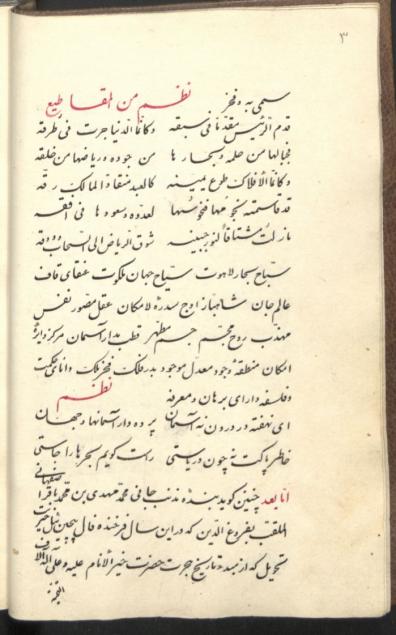 ۳
سمی به و فخر نظم من المقاطیع
قدم الرئیس مقدما فی سبقه وکانما الدنیا جرت فی طرقه
فجبالها من حلمه وبحارها من جوده وریاضها من خلقه
وکانما الافلاک طوع یمینه کالعبد منقادا لمالک رقه
قد قاسمته نجومها فنحوسها لعدوه وسعودها فی افقه
مازلت مشتاقا لنور جبینه شوق الریاض الی السحاب وودقه
سباح بحار لاهوت سیاح جهان ملکوت عنقای قاف
عالم جان شاهباز اوج سدره لامکان عقل مصور نفس
مهذب روح مجسم جسم مطهر قطب مدار آسمان مرکز دایرهٔ
امکان منطقهٔ وجود معدل موجود بدر فلک فخر ملک دانای حکمت
و فلسفه دارای برهان و معرفه نظم
ای نهفته در درون نه آسمان پرده دار آسمانها در جهان
خاطر پاکت نه چون دریاستی راست گویم بحرها را حاستی
اما بعد چنین گوید بندهٔ مذنب جانی محمد مهدی بن محمد باقر اصفهانی
الملقب بفروغ الدین که در این سال فرخنده فال
تحویل که از مبدء تاریخ هجرت حضرت خیر الانام علیه و علی آله